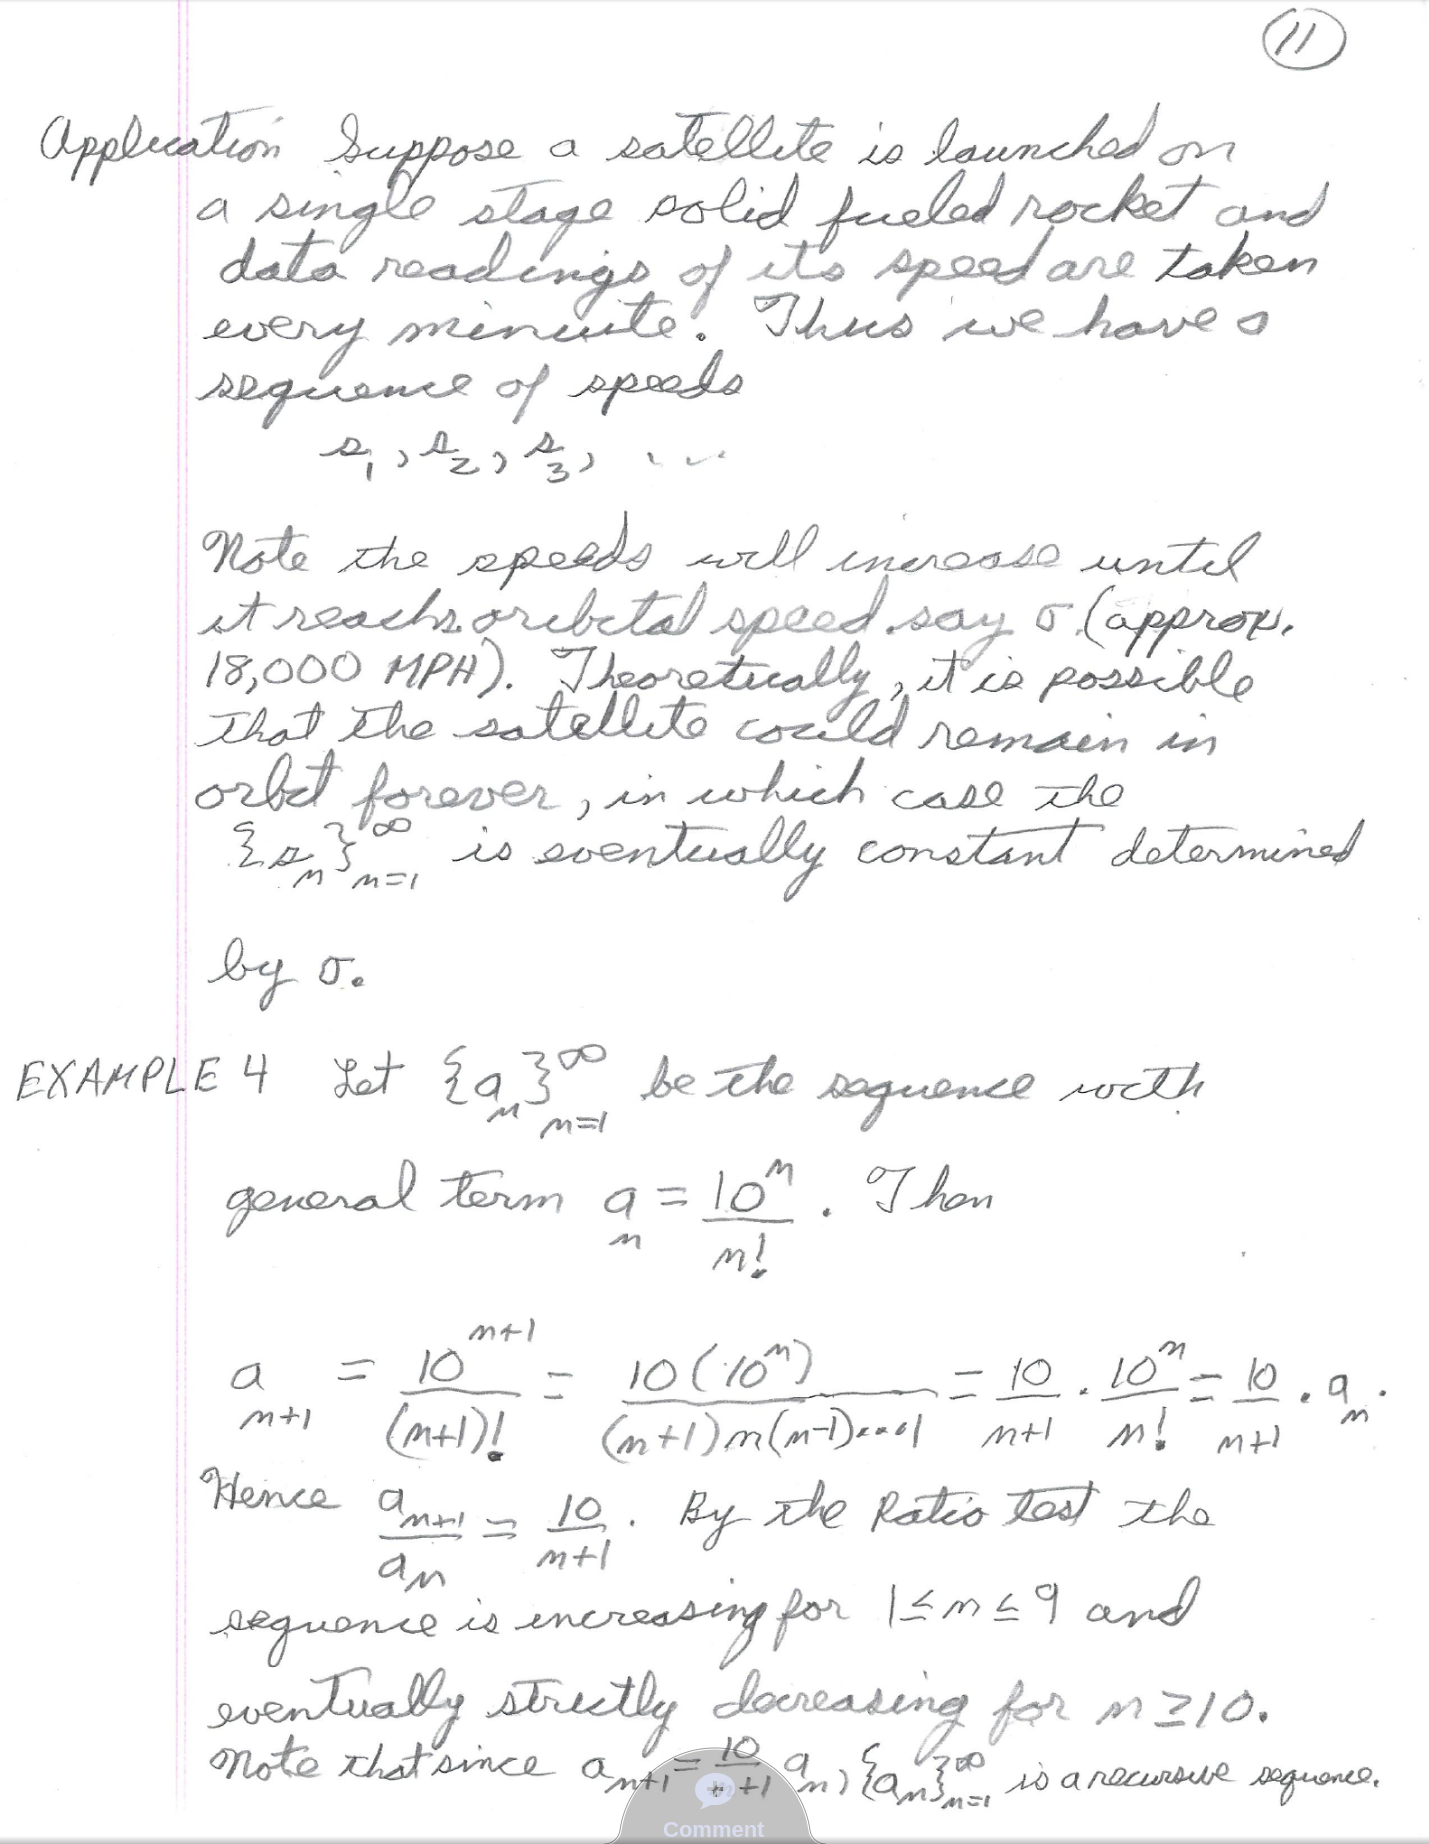 11
Application Suppose a satellite is launched on
a single stage solid fueled rocket and
data readings of its speed are taken
every minute. Thus we have a
sequence of speeds
s₁, s₂, s₃, ...
Note the speeds will increase until
it reachs oribital speed say σ (approx.
18,000 MPH). Theoretically, it is possible
that the satellite could remain in
orbit forever, in which case the
{sₙ}ₙ₌₁^∞ is eventually constant determined
by σ.
EXAMPLE 4 Let {aₙ}ₙ₌₁^∞ be the sequence with
general term aₙ = 10ⁿ/n! . Then
aₙ₊₁ = 10ⁿ⁺¹/(n+1)! = 10(10ⁿ)/((n+1)n(n-1)...1) = 10/(n+1) · 10ⁿ/n! = 10/(n+1) · aₙ.
Hence aₙ₊₁/aₙ = 10/(n+1). By the Ratio test the
sequence is increasing for 1 ≤ n ≤ 9 and
eventually strictly decreasing for n ≥ 10.
Note that since aₙ₊₁ = 10/(n+1) aₙ, {aₙ}ₙ₌₁^∞ is a recursive sequence.
Comment